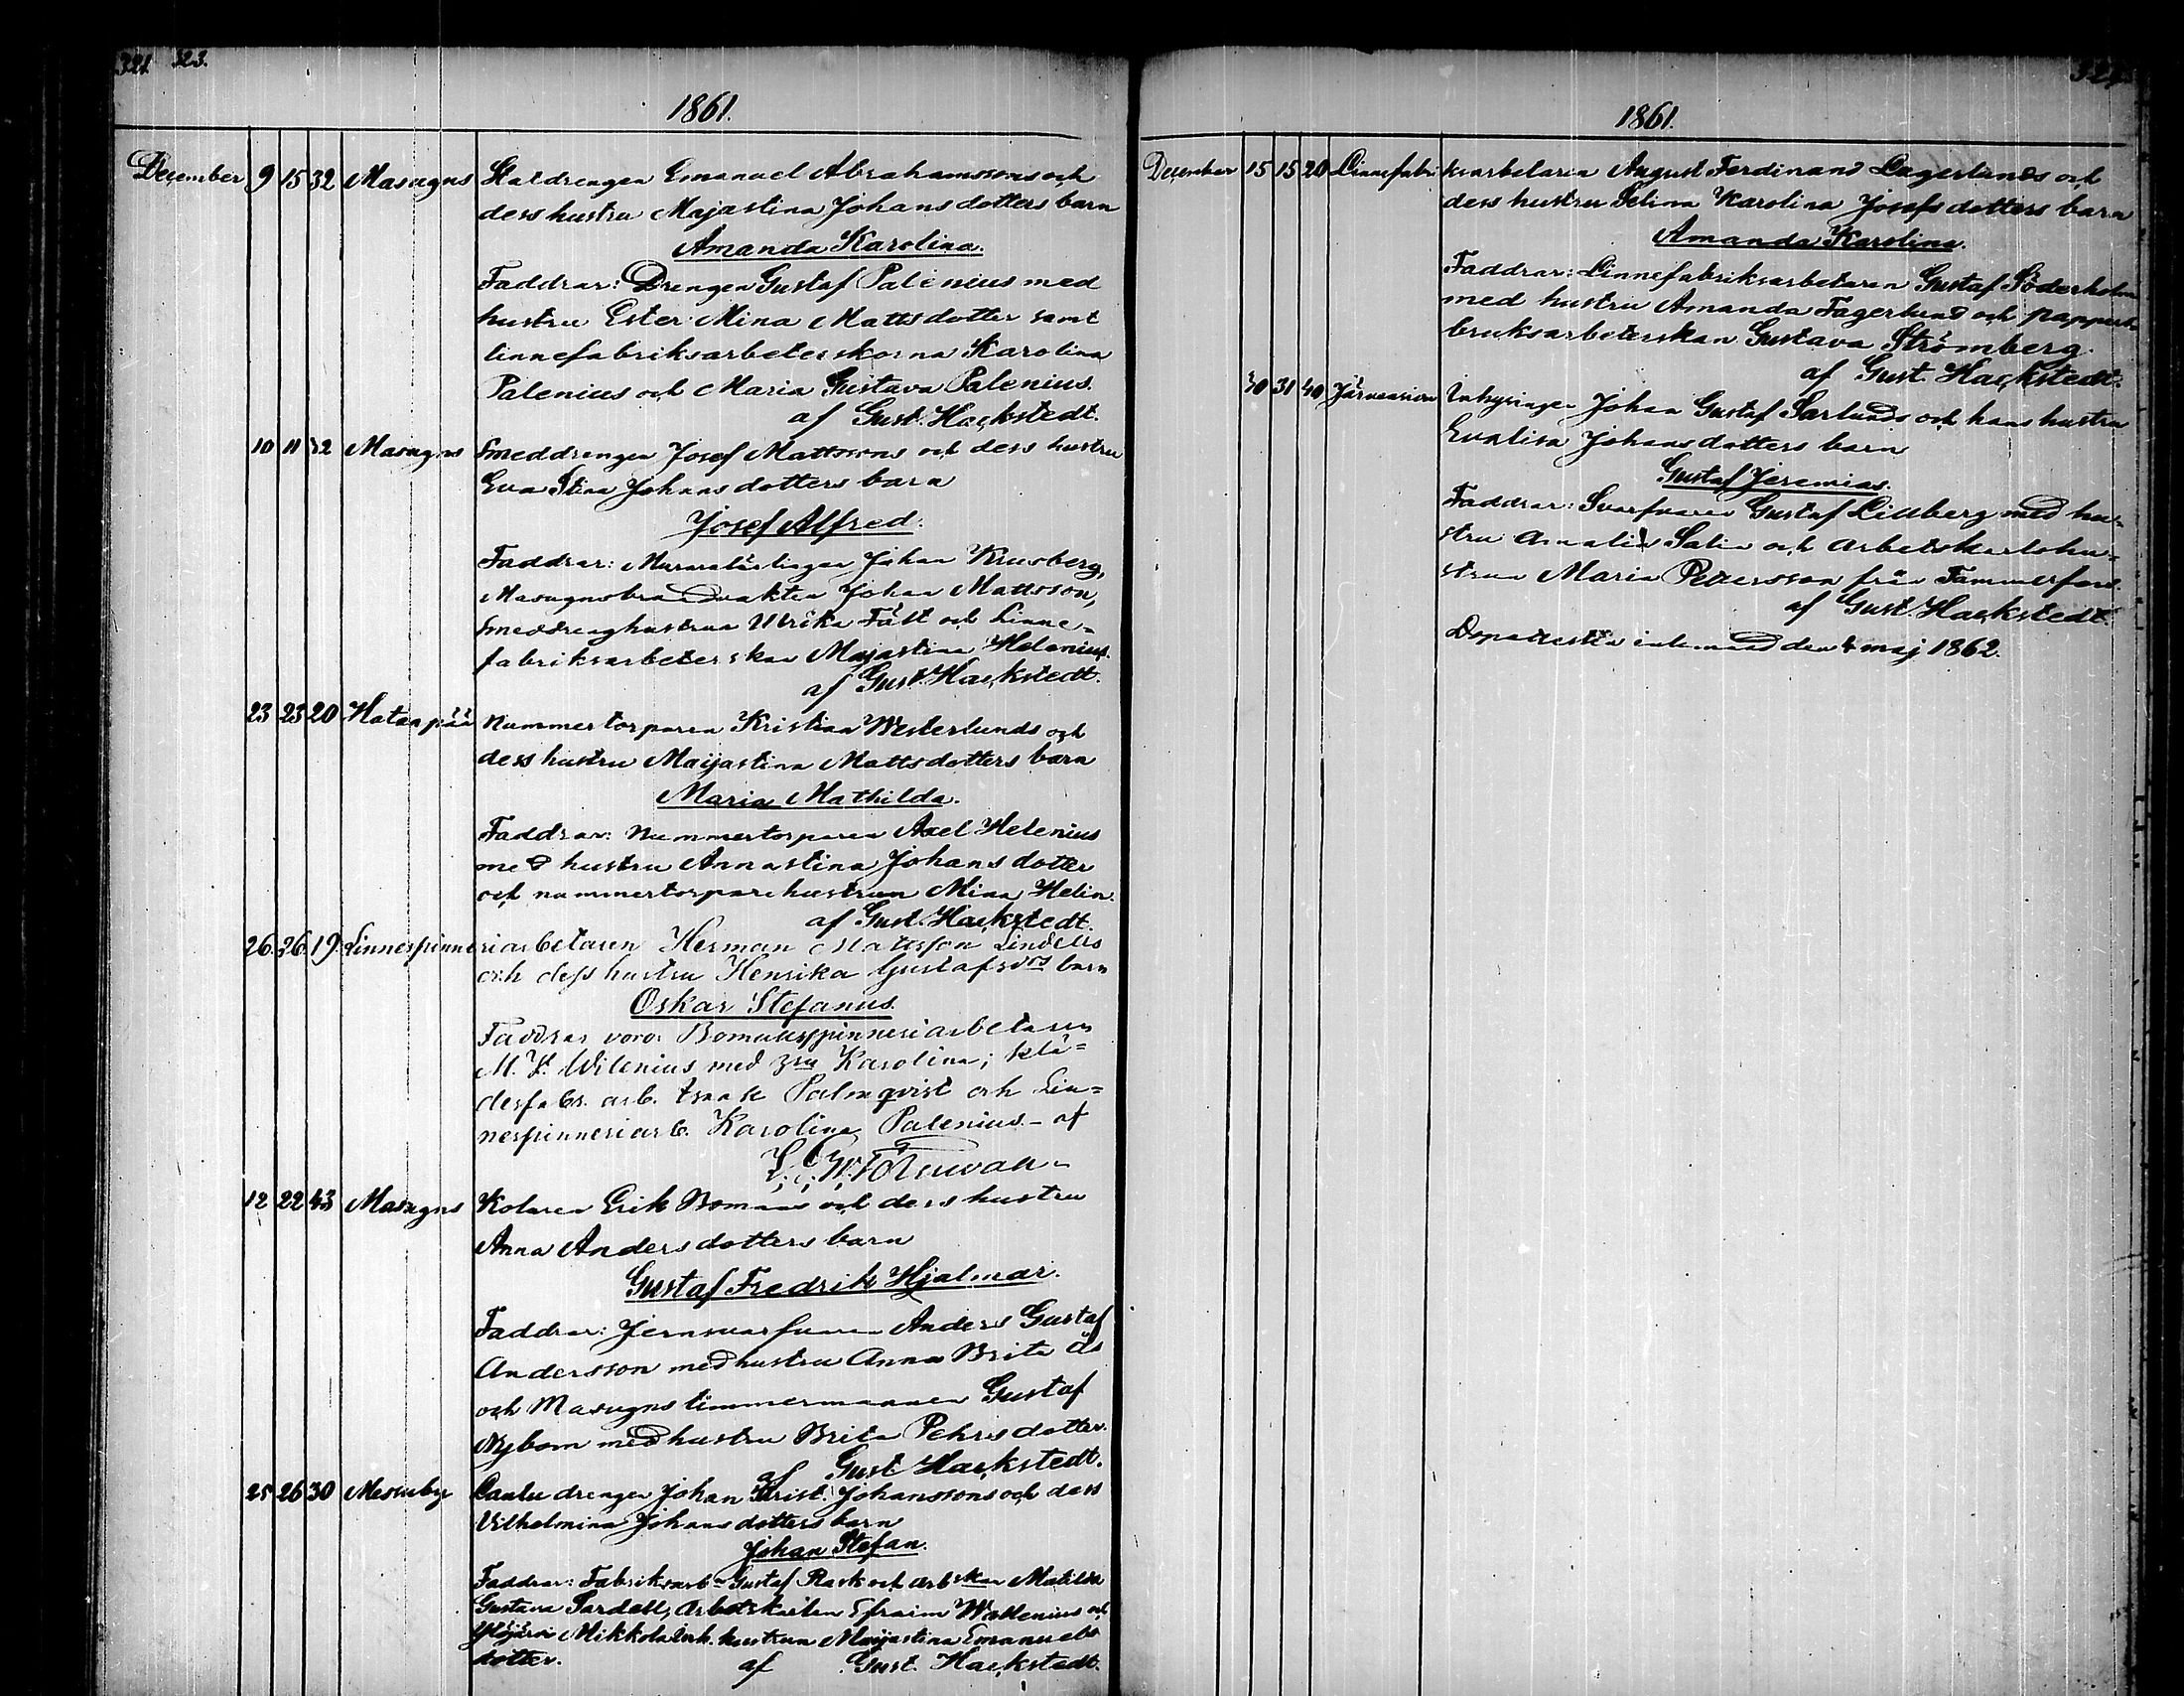 321 323.
1861.
December 9 15 32 Masugns Statdrengen Emanuel Abrahamssons och
dess hustru Majastina Johansdotters barn
Amanda Karolina.
Faddrar: Drengen Gustaf Palenius med
hustru Ester Mina Mattsdotter samt
linnefabriksarbeterskorna Karolina
Palenius och Maria Gustava Palenius.
af Gust. Hackstedt.
10 11 32 Masugns Smeddrengen Josef Mattssons och dess hustru
Eva Stina Johansdotters barn
Josef Alfred.
Faddrar: Murarelärlingen Johan Krusberg,
Masugnsbrandvakten Johan Mattsson,
Smeddrenghustrun Ulrika Fäst och Linne-
fabriksarbeterskan Majastina Helenius.
af Gust. Hackstedt.
23 23 20 Hatanpää Nummertorparen Kristian Westerlunds och
dess hustru Maijastina Mattsdotters barn
Maria Mathilda.
Faddrar: Nummertorparen Axel Helenius
med hustru Annastina Johansdotter
och nummertorparehustrun Mina Helin.
af Gust. Hackstedt.
26. 26. 19. Linnespinneriarbetaren Herman Mattsson Lindells
och dess hustru Henrika Gustafsdrs barn
Oskar Stefanus.
Faddrar voro: Bomullsspinneriarbetaren
M. Wilenius med Karolina; Klä=
desfabr. arb. Isaak Palmqvist och Lin=
nespinneriarb. Karolina Palenius. – af
12 22 43 Masugns Kolaren Erik Bomans och dess hustru
Anna Andersdotters barn
Gustaf Fredrik Hjalmar.
Faddrar: Jernsvarfvaren Anders Gustaf
Andersson med hustru Anna Brita Ås
och Masugnstimmermannen Gustaf
Nybom med hustru Brita Pehrsdotter.
af Gust. Hackstedt.
25 26 30 Messuby drengen Johan Krist. Johanssons och dess
Vilhelmina Johansdotters barn
Johan Stefan.
Faddrar: Fabriksarbn Gustaf Rask och arbskan Matilda
Gustava Sardell, Arbetskarlen Efraim Wallenius och
Ylöjärvi Mikkola inh. hustrun Maijastina Emanuels
dotter.
af Gust. Hackstedt.
1861.
December 15 15 20 Linnefabriksarbetaren August Ferdinand Lagerlunds och
dess hustru Selina Karolina Josefsdotters barn
Amanda Karolina.
Faddrar: Linnefabriksarbetaren Gustaf Söderholm
med hustru Amanda Fagerlund och pappers
bruksarbeterskan Gustava Strömberg.
af Gust. Hackstedt.
30 31 40 Järvensivu Inhysingen Johan Gustaf Sarlunds och hans hustru
Evalisa Johansdotters barn
Gustaf Jeremias.
Faddrar: Svarfvaren Gustaf Lillberg med hu-
stru Amalia Salin och Arbetskarlshu-
strun Maria Pettersson från Tammerfors.
af Gust. Hackstedt.
Dopattestin den 4 maj 1862.